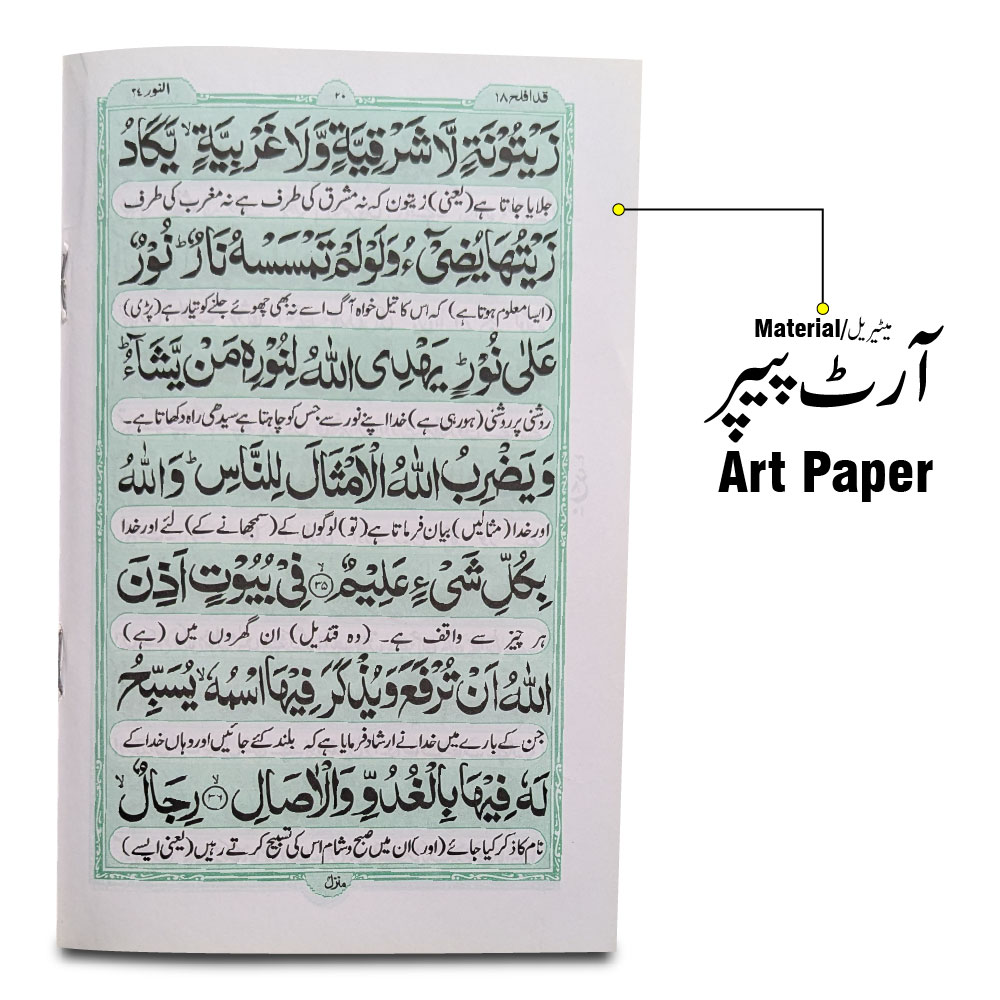 قد افلح ۱۸
۲۰
النور ۲۴
زَيْتُوْنَةٍ لَّا شَرْقِيَّةٍ وَّلَا غَرْبِيَّةٍ ۙ يَّكَادُ
جلایا جاتا ہے (یعنی) زیتون کہ نہ مشرق کی طرف ہے نہ مغرب کی طرف
زَيْتُهَا يُضِيْٓءُ وَلَوْ لَمْ تَمْسَسْهُ نَارٌ ؕ نُوْرٌ
(ایسا معلوم ہوتا ہے) کہ اس کا تیل خواہ آگ اسے نہ بھی چھوئے جلنے کو تیار ہے (بڑی)
عَلٰى نُوْرٍ ؕ يَهْدِى اللّٰهُ لِنُوْرِهٖ مَنْ يَّشَآءُ ؕ
روشنی پر روشنی (ہو رہی ہے) خدا اپنے نور سے جس کو چاہتا ہے سیدھی راہ دکھاتا ہے۔
وَيَضْرِبُ اللّٰهُ الْاَمْثَالَ لِلنَّاسِ ؕ وَاللّٰهُ
اور خدا (مثالیں) بیان فرماتا ہے (تو) لوگوں کے (سمجھانے کے) لئے اور خدا
بِكُلِّ شَىْءٍ عَلِيْمٌ ۙ ﴿۳۵﴾ فِىْ بُيُوْتٍ اَذِنَ
ہر چیز سے واقف ہے۔ (وہ قندیل) ان گھروں میں (ہے)
اللّٰهُ اَنْ تُرْفَعَ وَيُذْكَرَ فِيْهَا اسْمُهٗ ۙ يُسَبِّحُ
جن کے بارے میں خدا نے ارشاد فرمایا ہے کہ بلند کئے جائیں اور وہاں خدا کے
لَهٗ فِيْهَا بِالْغُدُوِّ وَالْاٰصَالِ ۙ ﴿۳۶﴾ رِجَالٌ ۙ
نام کا ذکر کیا جائے (اور) ان میں صبح و شام اس کی تسبیح کرتے رہیں (یعنی ایسے)
منزل
Material/میٹیریل
آرٹ پیپر
Art Paper